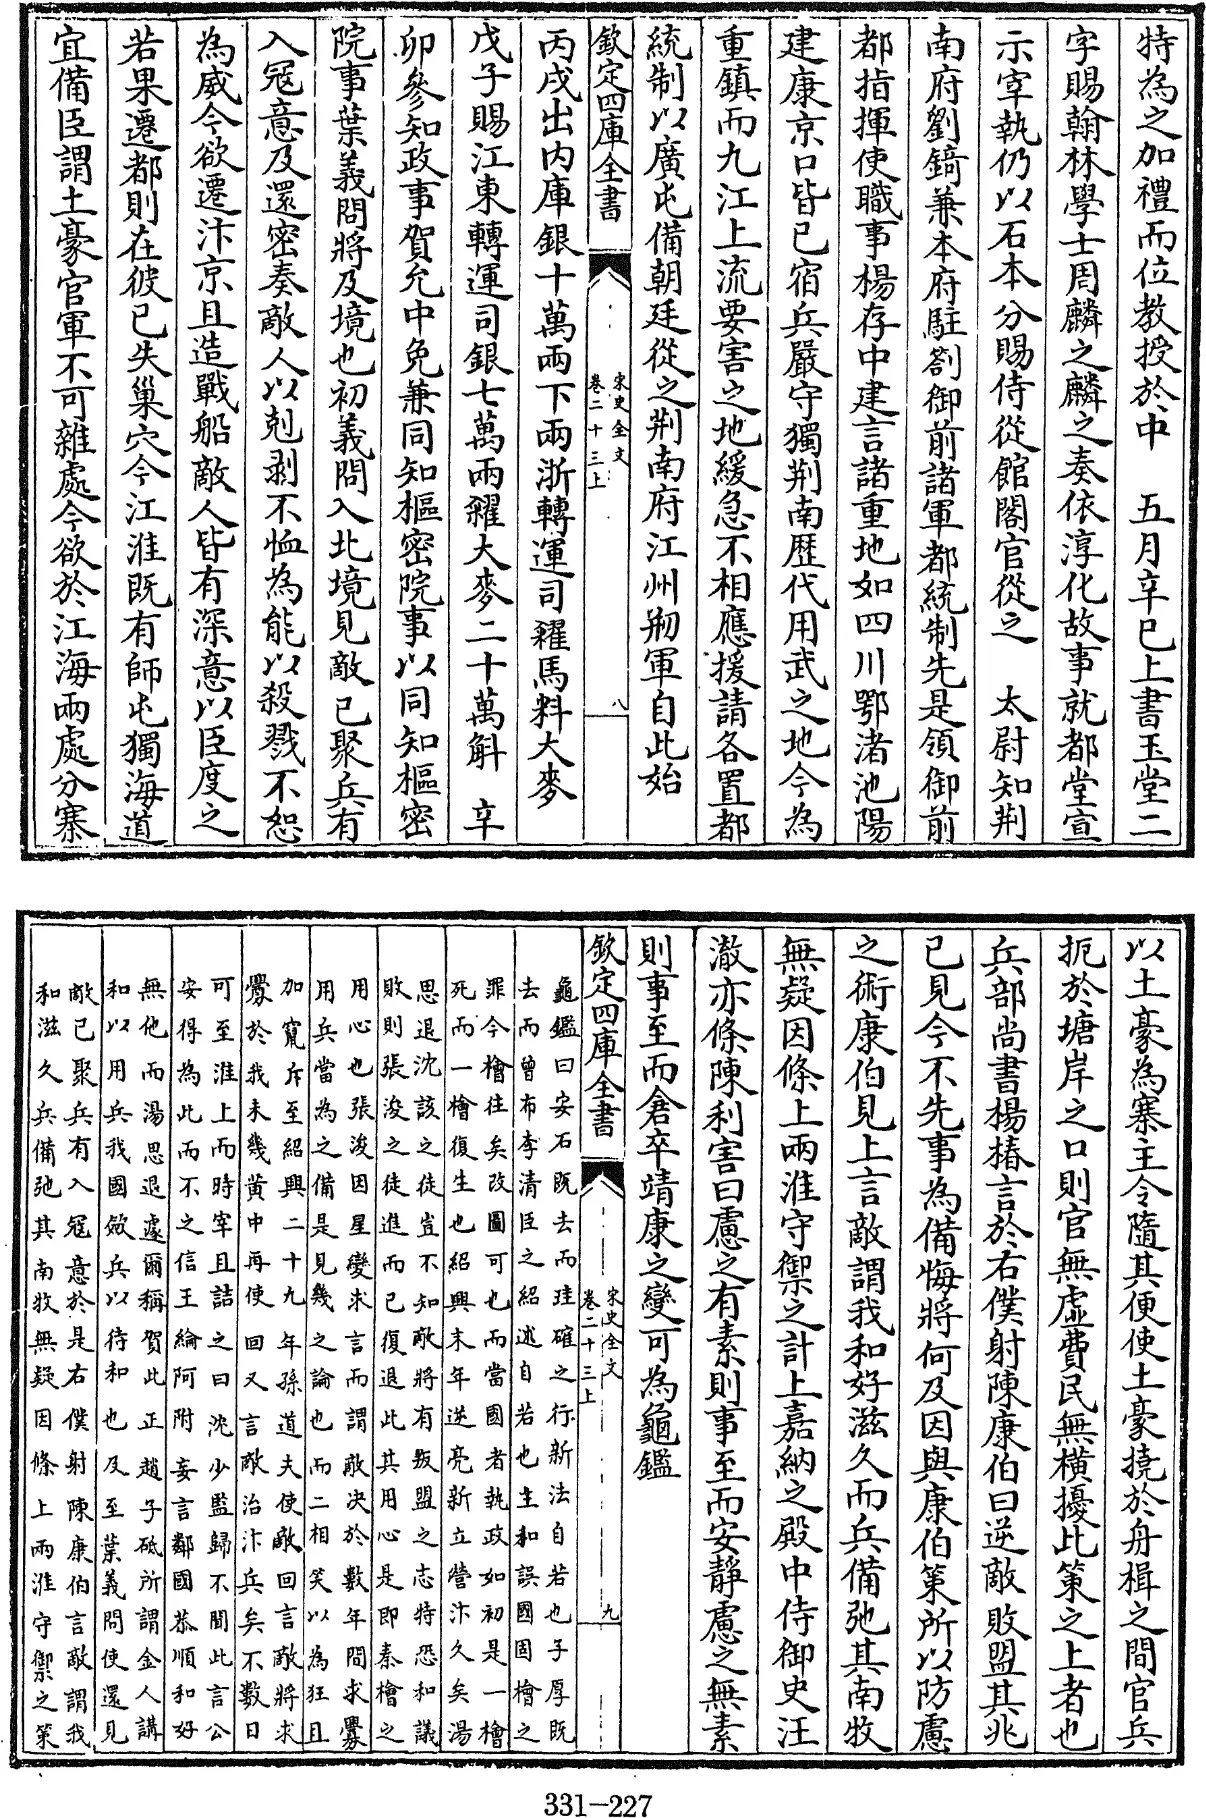 特為之加禮而位教授於中　五月辛巳上書玉堂二
字賜翰林學士周麟之麟之奏依淳化故事就都堂宣
示宰執仍以石本分賜侍從館閣官從之　太尉知荆
南府劉錡兼本府駐劄御前諸軍都統制先是領御前
都指揮使職事楊存中建言諸重地如四川鄂渚池陽
建康京口皆已宿兵嚴守獨荆南歴代用武之地今為
重鎮而九江上流要害之地緩急不相應援請各置都
統制以廣屯備朝廷從之荆南府江州剏軍自此始
欽定四庫全書
宋史全文
卷二十三上
八
丙戌出内庫銀十萬兩下兩浙轉運司糴馬料大麥
戊子賜江東轉運司銀七萬兩糴大麥二十萬斛　辛
卯參知政事賀允中免兼同知樞密院事以同知樞密
院事葉義問將及境也初義問入北境見敵已聚兵有
入冦意及還密奏敵人以剋剥不恤為能以殺戮不恕
為威今欲遷汴京且造戰船敵人皆有深意以臣度之
若果遷都則在彼已失巢穴今江淮既有師屯獨海道
宜備臣謂土豪官軍不可雜處今欲於江海兩處分寨
以土豪為寨主令隨其便使土豪撓於舟楫之間官兵
扼於塘岸之口則官無虛費民無横擾此策之上者也
兵部尚書楊椿言於右僕射陳康伯曰逆敵敗盟其兆
已見今不先事為備悔將何及因與康伯策所以防慮
之術康伯見上言敵謂我和好滋久而兵備弛其南牧
無疑因條上兩淮守禦之計上嘉納之殿中侍御史汪
澈亦條陳利害曰慮之有素則事至而安靜慮之無素
則事至而倉卒靖康之變可為龜鑑
欽定四庫全書
宋史全文
卷二十三上
九
龜鑑曰安石既去而珪確之行新法自若也子厚既
去而曾布李清臣之紹述自若也主和誤國固檜之
罪今檜往矣改圖可也而當國者執政如初是一檜
死而一檜復生也紹興末年逆亮新立營汴久矣湯
思退沈該之徒豈不知敵將有叛盟之志特恐和議
敗則張浚之徒進而已復退此其用心是即秦檜之
用心也張浚因星變求言而謂敵决於數年間求釁
用兵當為之備是見幾之論也而二相笑以為狂且
加竄斥至紹興二十九年孫道夫使敵回言敵將求
釁於我未幾黄中再使回又言敵治汴兵矣不數日
可至淮上而時宰且詰之曰沈少監歸不聞此言公
安得為此而不之信王綸阿附妄言鄰國恭順和好
無他而湯思退遽爾稱賀此正趙子砥所謂金人講
和以用兵我國斂兵以待和也及至葉義問使還見
敵已聚兵有入冦意於是右僕射陳康伯言敵謂我
和滋久兵備弛其南牧無疑因條上兩淮守禦之策
331-227